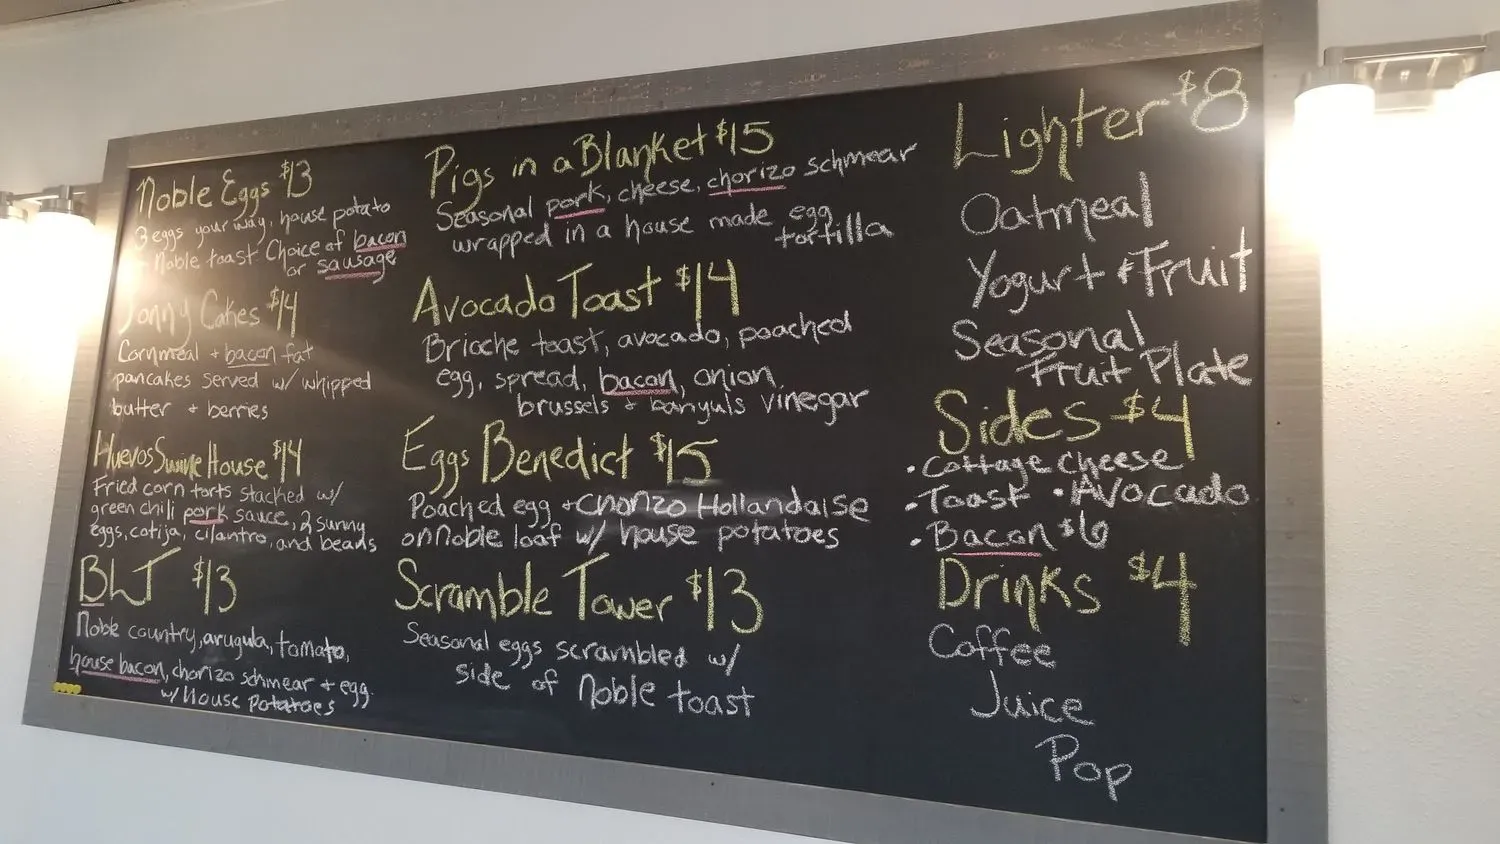 Noble Eggs $13
3 eggs your way, house potato
+ Noble toast Choice of bacon
or sausage
Jonny Cakes $14
Cornmeal + bacon fat
pancakes served w/ whipped
butter + berries
Huevos Swine House $14
Fried corn torts stacked w/
green chili pork sauce, 2 sunny
eggs, cotija, cilantro, and beans
BLT $13
Noble country, arugula, tomato,
house bacon, chorizo schmear + egg
w/ House Potatoes
Pigs in a Blanket $15
Seasonal pork, cheese, chorizo schmear
wrapped in a house made egg
tortilla
Avocado Toast $14
Brioche toast, avocado, poached
egg, spread, bacon, onion,
brussels + banyuls vinegar
Eggs Benedict $15
Poached egg + chorizo Hollandaise
on Noble loaf w/ house potatoes
Scramble Tower $13
Seasonal eggs scrambled w/
side of Noble toast
Lighter $8
Oatmeal
Yogurt + Fruit
Seasonal
Fruit Plate
Sides $4
• Cottage Cheese
• Toast • Avocado
• Bacon $6
Drinks $4
Coffee
Juice
Pop